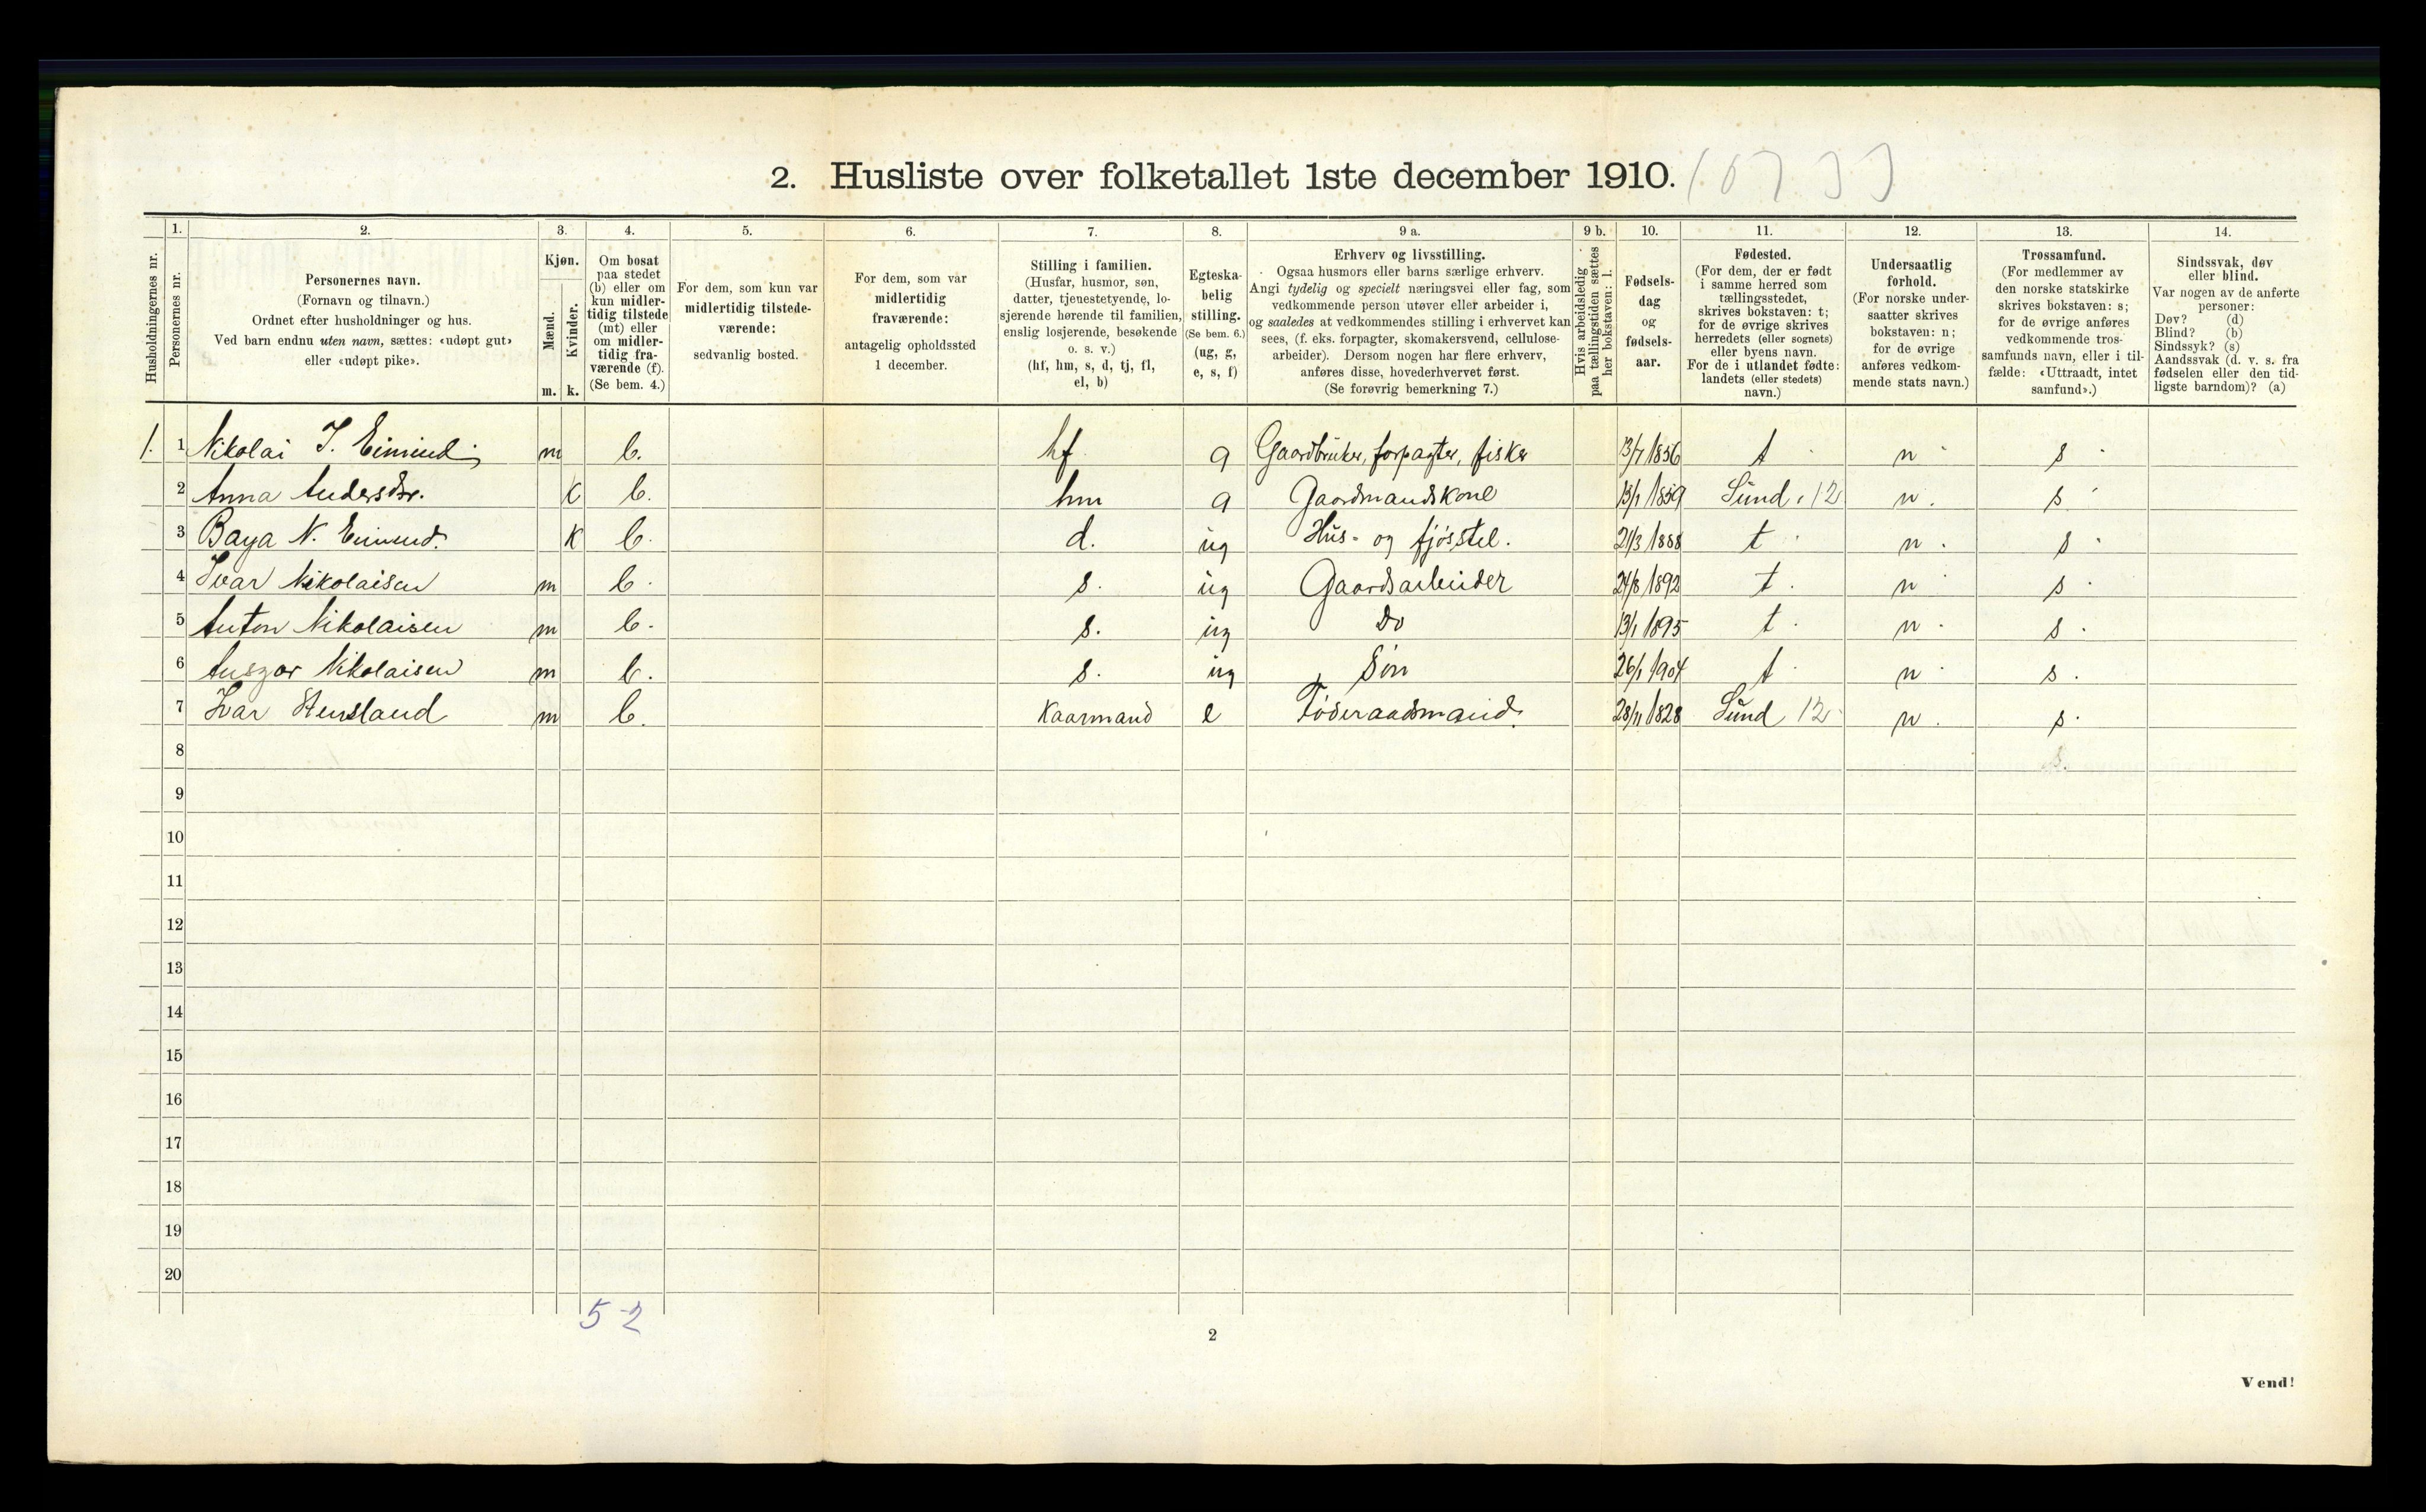 2. Husliste over folketallet 1ste december 1910.
1. 2. 3. 4. 5. 6. 7. 8. 9 a. 9 b. 10. 11. 12. 13. 14.
Husholdningernes nr.
Personernes nr.
Personernes navn.
(Fornavn og tilnavn.)
Ordnet efter husholdninger og hus.
Ved barn endnu uten navn, sættes: «udøpt gut»
eller «udøpt pike».
Kjøn.
Mænd.
Kvinder.
m. k.
Om bosat
paa stedet
(b) eller om
kun midler-
tidig tilstede
(mt) eller
om midler-
tidig fra-
værende (f).
(Se bem. 4.)
For dem, som kun var
midlertidig tilstede-
værende:
sedvanlig bosted.
For dem, som var
midlertidig
fraværende:
antagelig opholdssted
1 december.
Stilling i familien.
(Husfar, husmor, søn,
datter, tjenestetyende, lo-
sjerende hørende til familien,
enslig losjerende, besøkende
o. s. v.)
(hf, hm, s, d, tj, fl,
el, b)
Egteska-
belig
stilling.
(Se bem. 6.)
(ug, g,
e, s, f)
Erhverv og livsstilling.
Ogsaa husmors eller barns særlige erhverv.
Angi tydelig og specielt næringsvei eller fag, som
vedkommende person utøver eller arbeider i,
og saaledes at vedkommendes stilling i erhvervet kan
sees, (f. eks. forpagter, skomakersvend, cellulose-
arbeider). Dersom nogen har flere erhverv,
anføres disse, hovederhvervet først.
(Se forøvrig bemerkning 7.)
Hvis arbeidsledig
paa tællingstiden sættes
her bokstaven: l.
Fødsels-
dag
og
fødsels-
aar.
Fødested.
(For dem, der er født
i samme herred som
tællingsstedet,
skrives bokstaven: t;
for de øvrige skrives
herredets (eller sognets)
eller byens navn.
For de i utlandet fødte:
landets (eller stedets)
navn.)
Undersaatlig
forhold.
(For norske under-
saatter skrives
bokstaven: n;
for de øvrige
anføres vedkom-
mende stats navn.)
Trossamfund.
(For medlemmer av
den norske statskirke
skrives bokstaven: s;
for de øvrige anføres
vedkommende tros-
samfunds navn, eller i til-
fælde: «Uttraadt, intet
samfund».)
Sindssvak, døv
eller blind.
Var nogen av de anførte
personer:
Døv? (d)
Blind? (b)
Sindssyk? (s)
Aandssvak (d. v. s. fra
fødselen eller den tid-
ligste barndom)? (a)
1. 1 Nikolai I. Eimind m b. hf g Gaardbruker, forpagter, fisker 13/7 1856 t n s
2 Anna Andersdtr. k b. hm g Gaardmandskone 13/1 1859 Sund 12 n. s
3 Baya N. Eimind. k b. d. ug Hus- og fjøsstel. 21/3 1888 t n. s
4 Ivar Nikolaisen m b. s. ug Gaardsarbeider 24/8 1892 t. n s
5 Anton Nikolaisen m b. s. ug Do 13/1 1895 t. n. s.
6 Ansgar Nikolaisen m b. s. ug Søn 26/1 1904 t n s.
7 Ivar Stensland m b. Kaarmand e Føderaadsmand. 28/11 1828 Sund 12 n. s.
8
9
10
11
12
13
14
15
16
17
18
19
20
5-2
2
Vend!